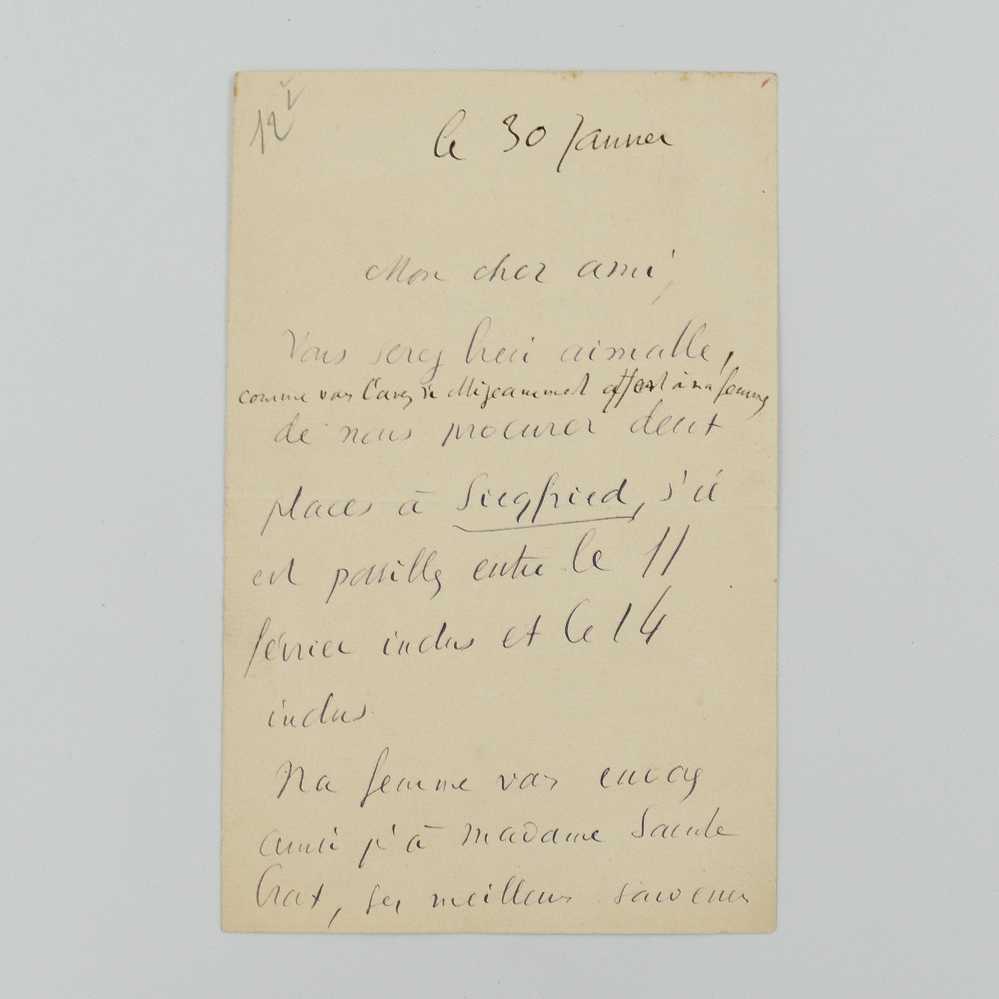 12
le 30 Janvier
Mon cher ami,
Vous serez bien aimable,
comme vous l'avez si offert à ma femme
de nous procurer deux
places à Siegfried, s'il
est possible, entre le 11
février inclus et le 14
inclus.
Ma femme vous envoie
ainsi qu'à madame Sainte
Croix, ses meilleurs souvenirs